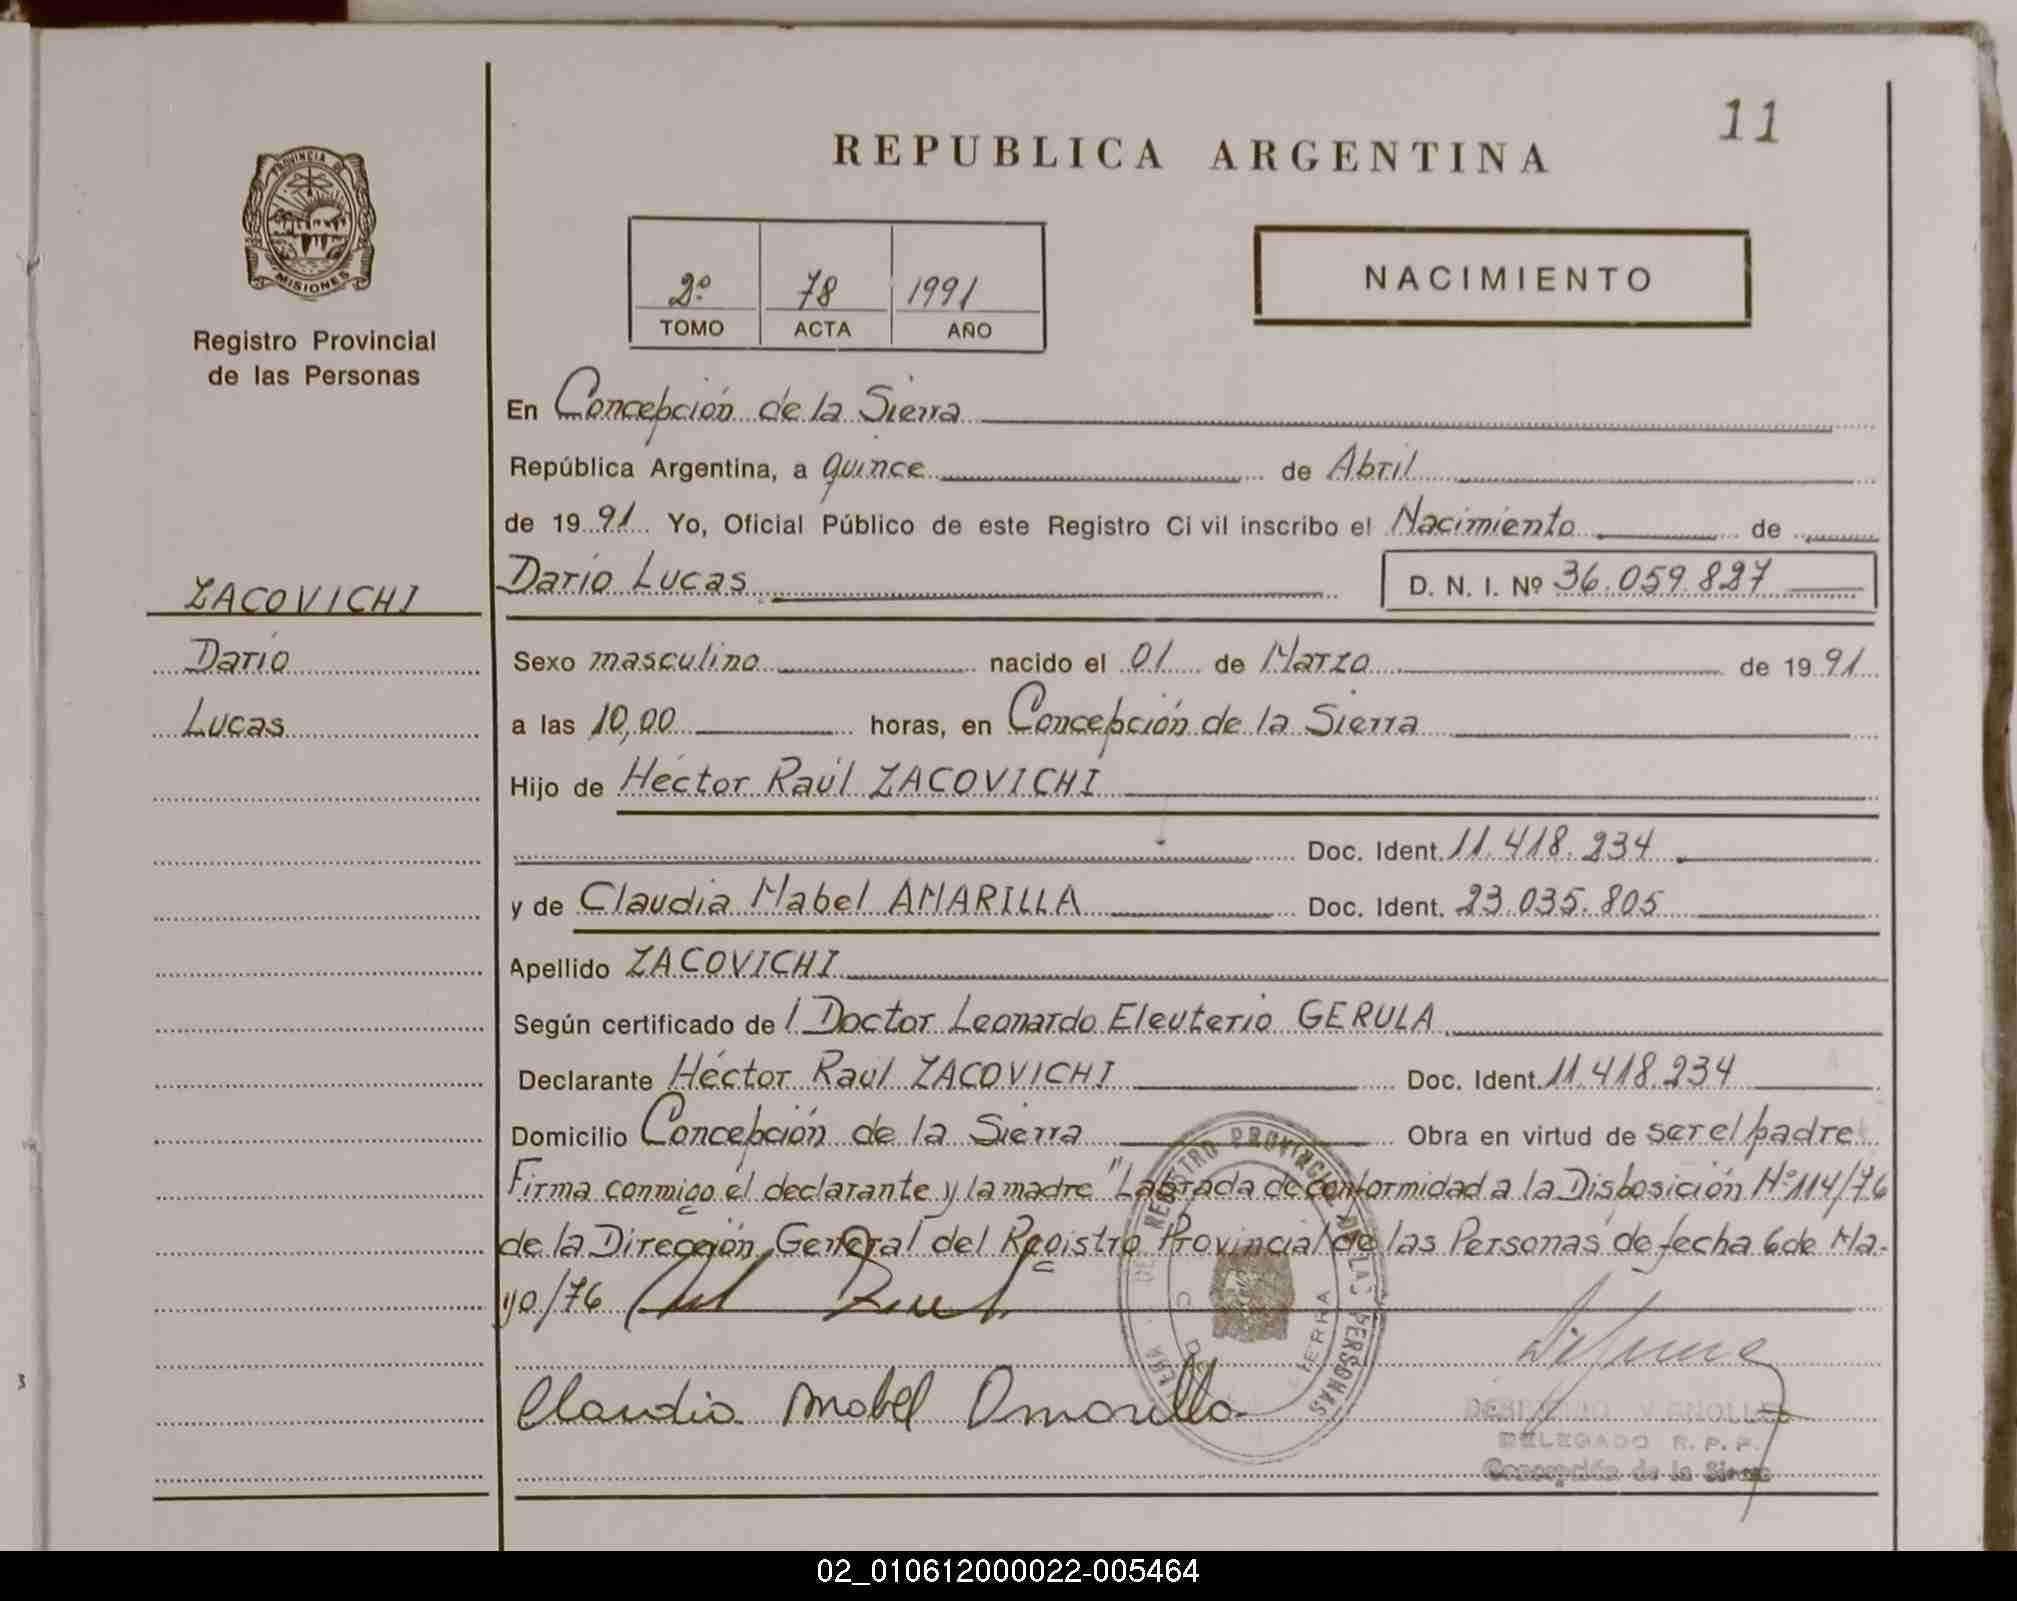 11
REPUBLICA ARGENTINA
PROVINCIA DE
MISIONES
Registro Provincial
de las Personas
2º 78 1991
TOMO ACTA AÑO
NACIMIENTO
En Concepción de la Sierra
República Argentina, a quince de Abril
de 1991 Yo, Oficial Público de este Registro Civil inscribo el Nacimiento de
Darío Lucas D. N. I. Nº 36.059.827
ZACOVICHI
Darío
Lucas
Sexo masculino nacido el 01 de Marzo de 1991
a las 10,00 horas, en Concepción de la Sierra
Hijo de Héctor Raúl ZACOVICHI
Doc. Ident. 11.418.234
y de Claudia Mabel AMARILLA Doc. Ident. 23.035.805
Apellido ZACOVICHI
Según certificado del Doctor Leonardo Eleuterio GERULA
Declarante Héctor Raúl ZACOVICHI Doc. Ident. 11.418.234
Domicilio Concepción de la Sierra Obra en virtud de ser el padre
Firma conmigo el declarante y la madre "Labrada de conformidad a la Disposición Nº 114/76
de la Dirección General del Registro Provincial de las Personas de fecha 6 de Ma-
yo/76
REGISTRO PROVINCIAL DE LAS PERSONAS
Claudia Mabel Amarilla
DELEGADO R. P. P.
Concepción de la Sierra
02_010612000022-005464